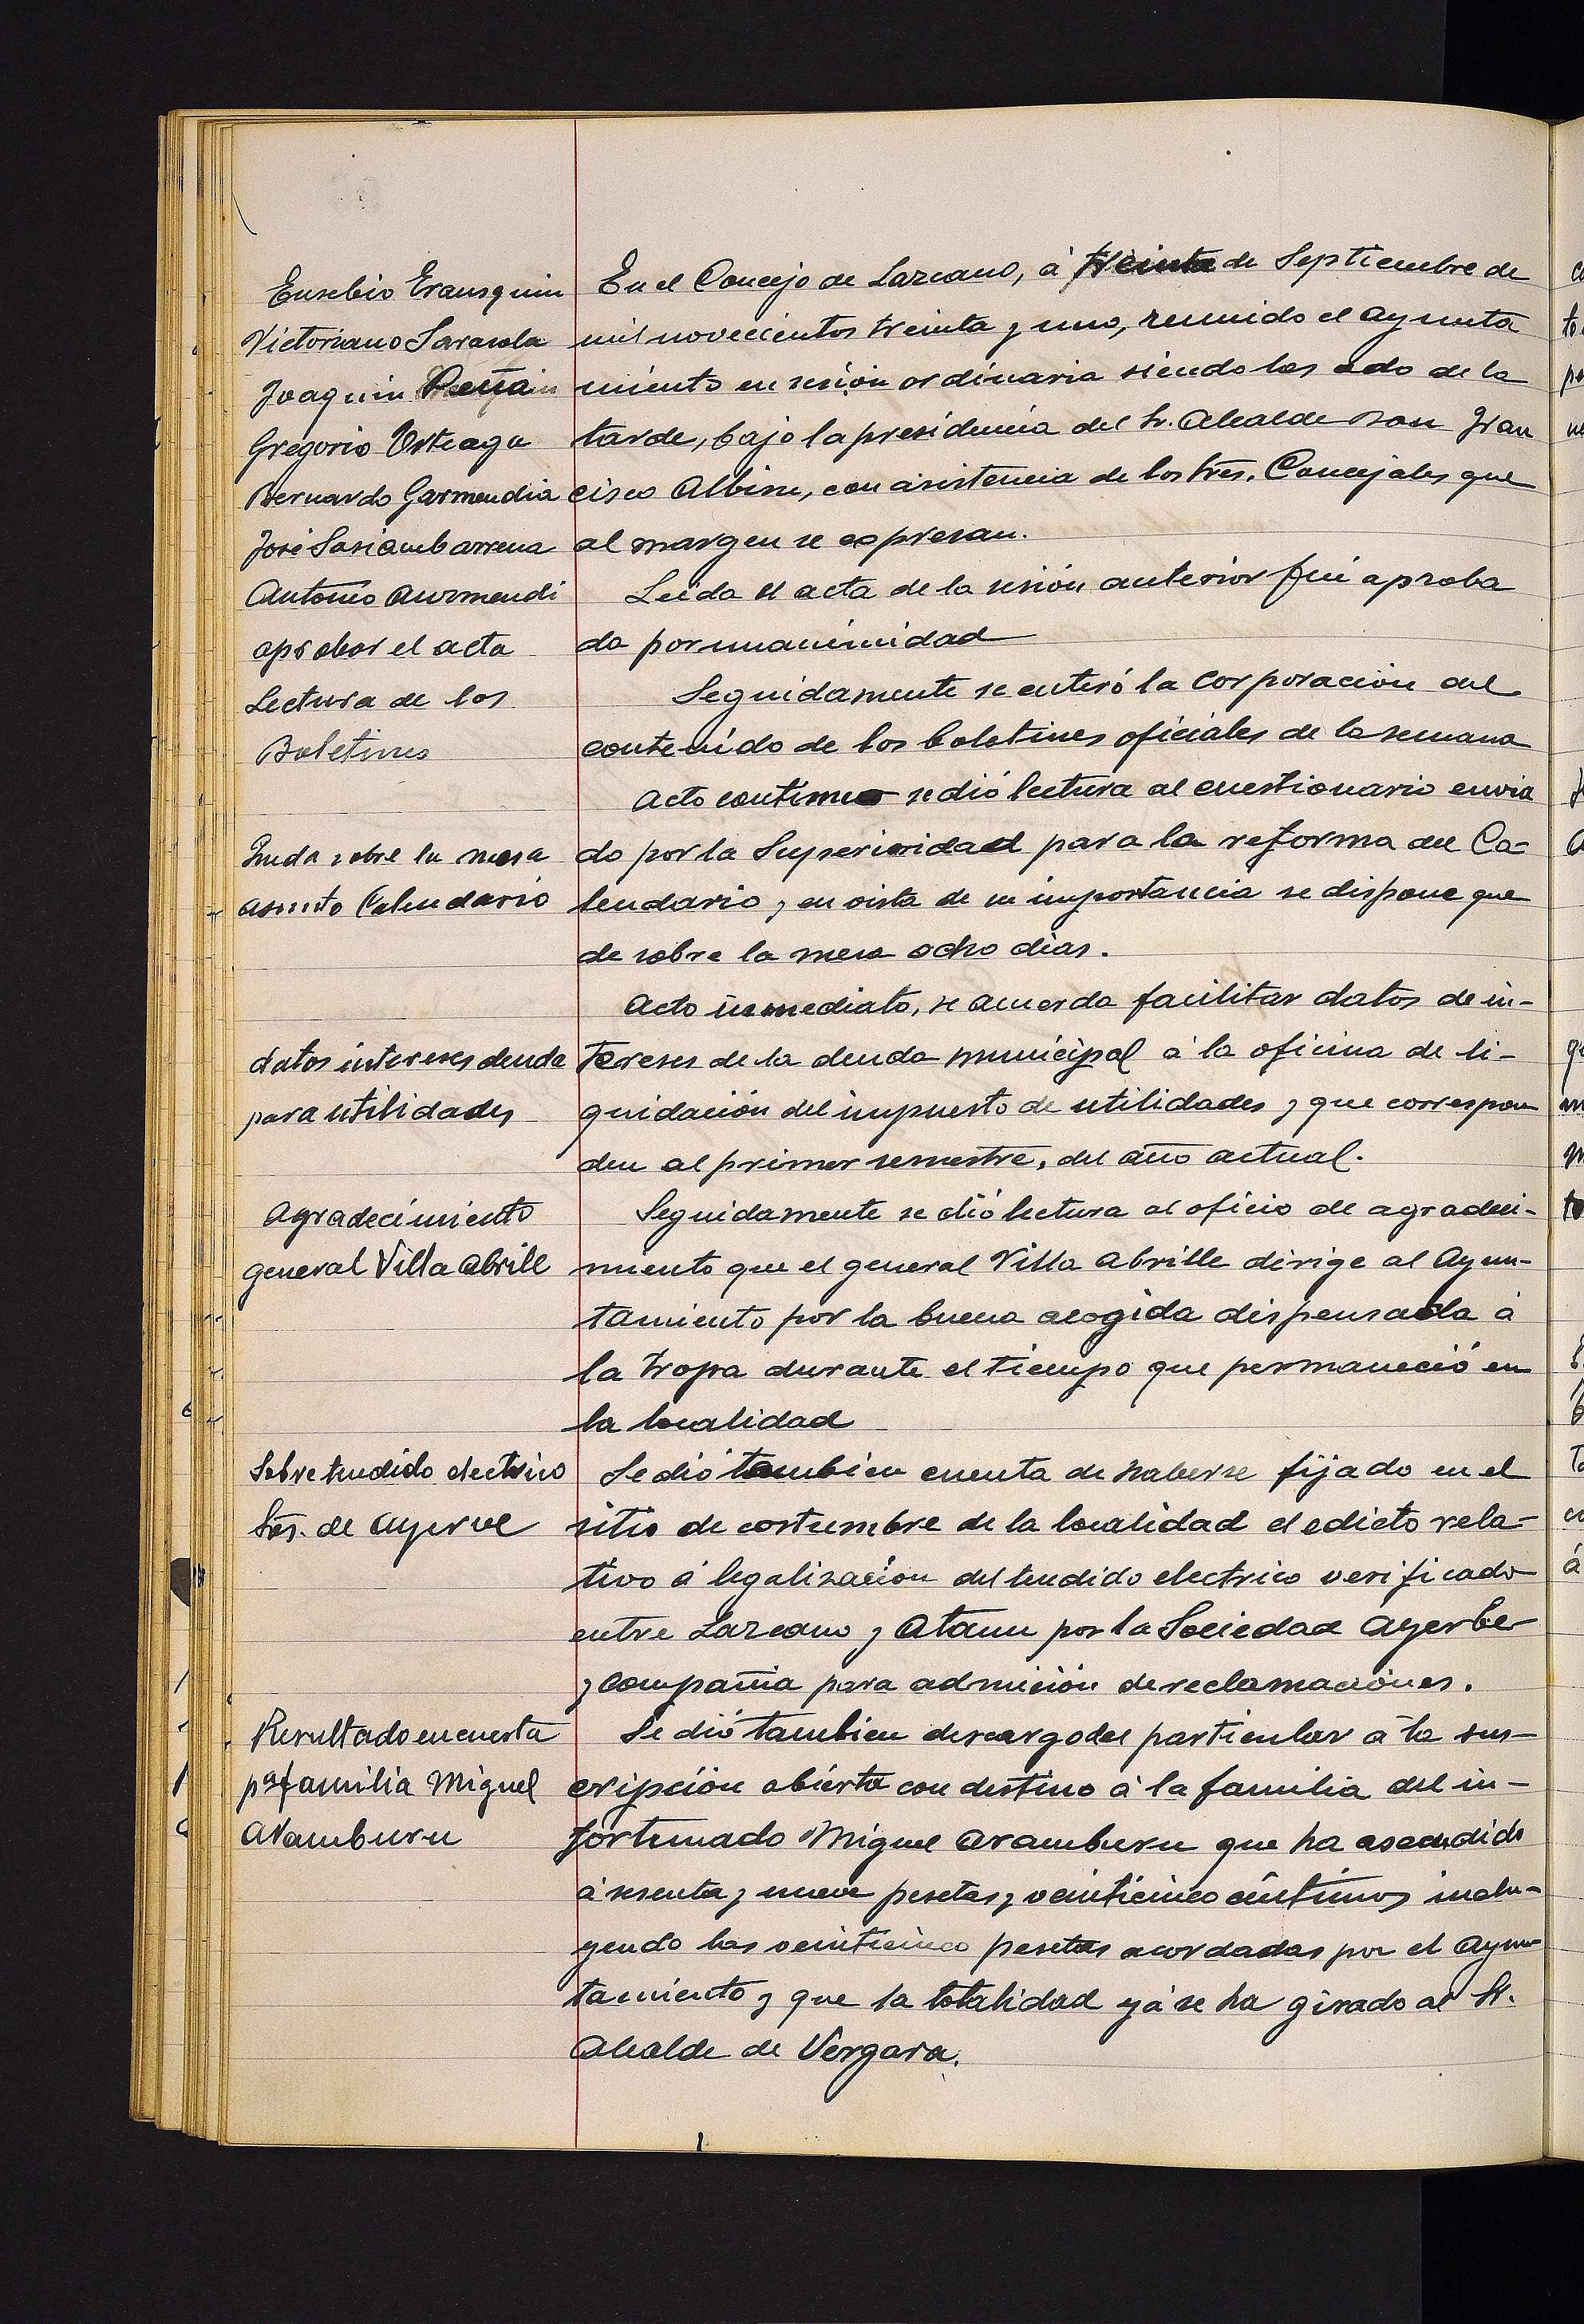 Eusebio Erausquin
Victoriano Sarasola
Joaquin
Gregorio Urteaga
Bernardo Garmendia
José Sasiambarrena
Antonio Aurmendi
aprobar el acta
Lectura de los
Boletines
Queda sobre la mesa
asunto Calendario
datos intereses deuda
para utilidades
Agradecimiento
general Villa Abrill
Sobre tendido electrico
Srs. de Ayerve
Resultado encuesta
pa familia Miguel
Aramburu
En el Concejo de Lazcano, á treinta de Septiembre de
mil novecientos treinta y uno, reunido el ayunta
miento en sesión ordinaria siendo las de la
tarde, bajo la presidencia del Sr. Alcalde Don Fran
cisco Albisu, con asistencia de los Sres. Concejales que
al margen se expresan.
Leida el acta de la sesión anterior fué aproba
da por unanimidad
Seguidamente se enteró la Corporación del
contenido de los boletines oficiales de la semana
Acto continuo se dió lectura al cuestionario envia
do por la Superioridad para la reforma del Ca-
lendario y en vista de su importancia se dispone que
de sobre la mesa ocho dias.
Acto inmediato, se acuerda facilitar datos de in-
tereses de la deuda municipal á la oficina de li-
quidación del impuesto de utilidades y que correspon
den al primer semestre, del año actual.
Seguidamente se dió lectura al oficio de agradeci-
miento que el general Villa Abrille dirige al Ayun-
tamiento por la buena acogida dispensada á
la tropa durante el tiempo que permaneció en
la localidad
Se dió tambien cuenta de haberse fijado en el
sitio de costumbre de la localidad el edicto rela-
tivo á legalización del tendido electrico verificado
entre Lazcano y Ataun por la Sociedad Ayerbe
y Compañia para admición de reclamaciones.
Se dió tambien descargo del particular á la sus-
cripción abierta con destino á la familia del in-
fortunado Miguel Aramburu que ha ascendido
á sesenta y nueve pesetas y veinticinco céntimos inclu-
yendo las veinticinco pesetas acordadas por el Ayun
tamiento y que la totalidad yá se ha girado al Sr.
Alcalde de Vergara.